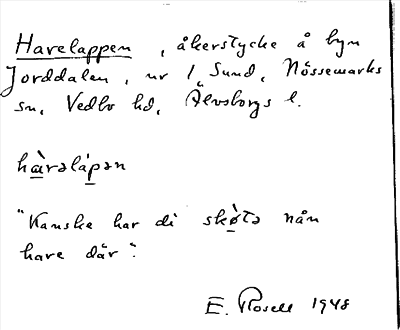 Harelappen, åkerstycke å byn
Jorddalen, nr 1 Sund, Nössemarks
sn, Vedbo hd, Älvsborgs l.
hàrəlápən
"Kanske har di skøtə nån
hare där".
E. Rosell 1948